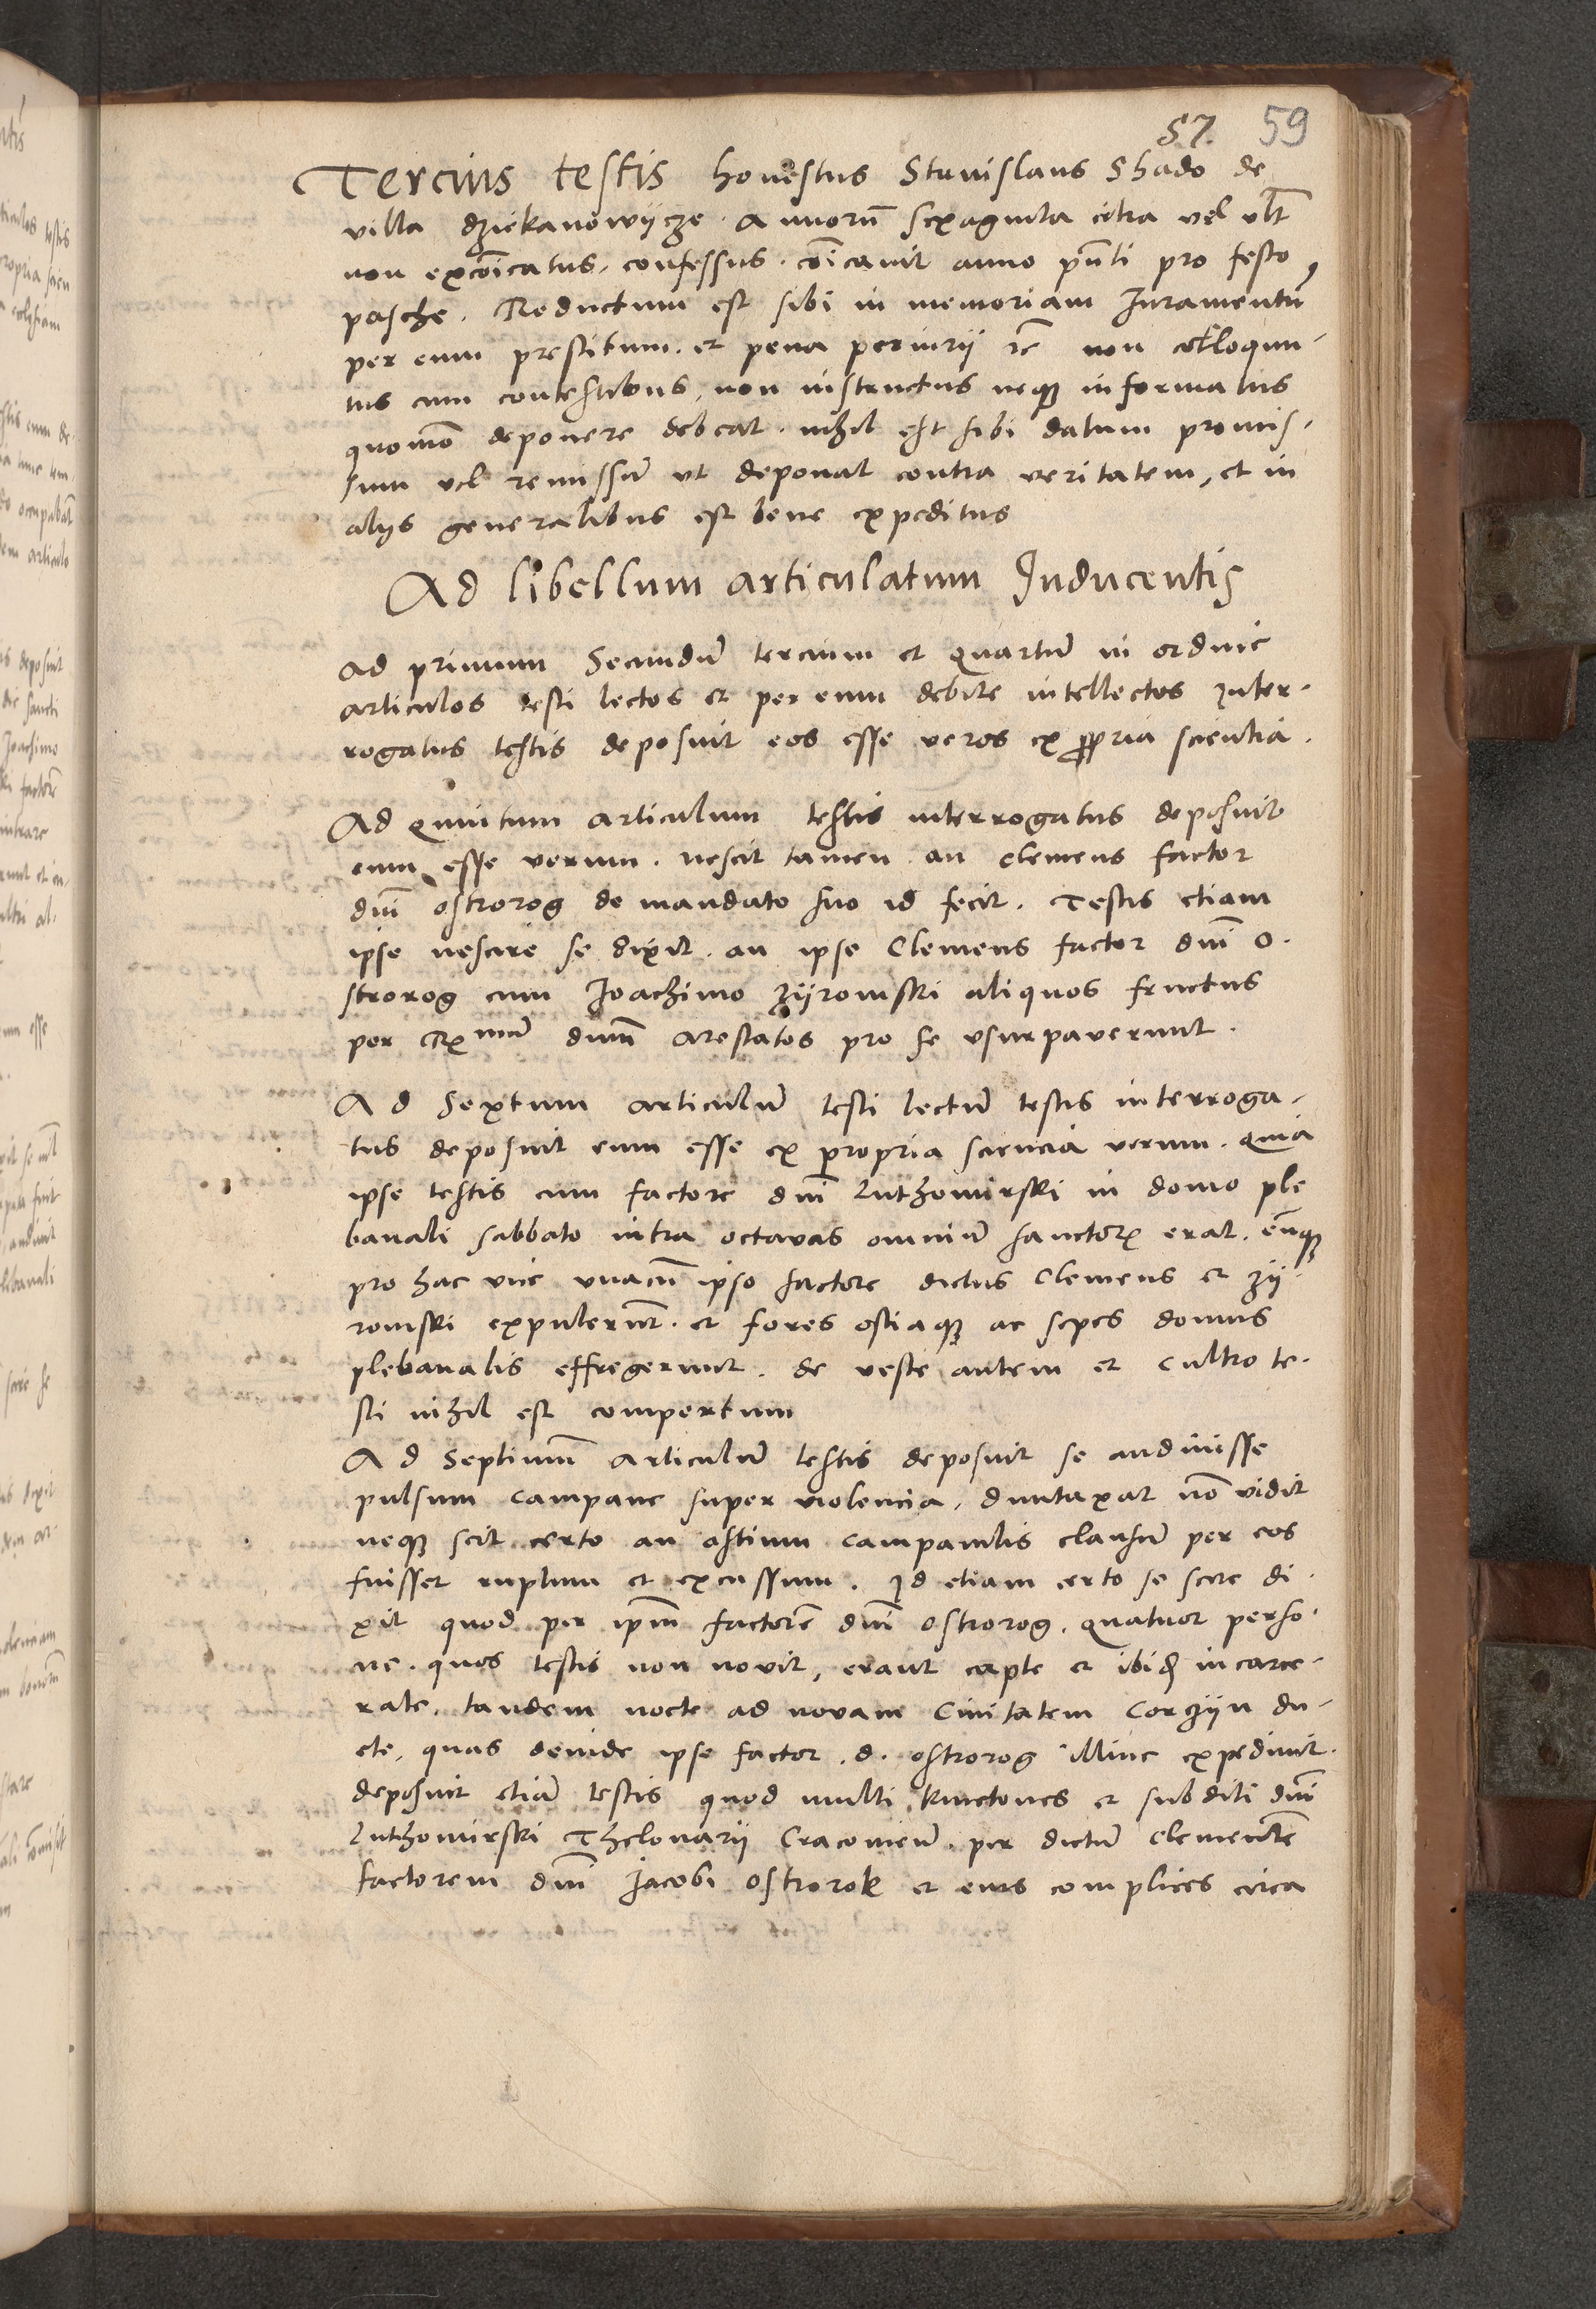 57. 59
Tercius testis honestus Stanislaus Shado de
villa dziekanowycze. Annorũ sexaginta citra vel vlt̃
non excõicatus, confessus. cõicavit anno pñti pro festo
pasche. Reductum est sibi in memoriam Iuramentũ
per eum prestitum. et pena periurij rc̃ non colloqun-
tus cum contestibus, non instructus neqꝫ informatus
quomõ deponere debeat. nihil est sibi datum promis-
sum vel remissũ ut deponat contra veritatem, et in
alijs generalibus est bene expeditus
Ad libellum articulatum Inducentis
Ad primum Secundũ tercium et quartũ in ordine
articulos testi lectos et per eum debite intellectos Inter-
rogatus testis deposuit eos esse veros ex ꝓpria scientia.
Ad quintum articulum testis interrogatus deposuit
eum esse verum. nescit tamen an clemens factor
dnĩ ostrorog de mandato suo id fecit. Testis etiam
ipse nescire se dixit. an ipse Clemens factor dnĩ o-
strorog cum Joachimo zÿromski aliquos fructus
per Rmũ dnum̃ arestatos pro se vsurpaverunt.
Ad Sextum articulũ testi lectũ testis interroga-
tus deposuit eum esse ex propria sciencia verum. quia
ipse testis cum factore dnĩ Luthomirski in domo ple
banali sabbato intra octavas omniũ sanctorꝝ erat. eũqꝫ
pro hac vice vnacũ ipso factore dictus Clemens et zÿ-
romski expulerũt. et fores ostiaqꝫ ac sepes domus
plebanalis effregerunt. de veste autem et cultro te-
sti nihil est compertum
Ad Septimũ articulũ testis deposuit se audiuisse
pulsum campane super violencia, duntaxat nõ vidit
neqꝫ scit certo an ostium campanilis clausũ per eos
fuisset ruptum et excussum. Id etiam certo se scire di-
xit quod per ipm̃ factorẽ dnĩ ostrorog. quatuor perso-
ne. quos testis non novit, erant capte et ibid̃ incarce-
rate. tandem nocte ad novam Civitatem Corczÿn du-
cte, quas deinde ipse factor .d. ostrorog illinc expediuit.
deposuit etiã testis quod multi kmetones et subditi dnĩ
Luthomirski Thelonarij Cracovieñ. per dictũ clementẽ
factorem dnĩ Jacobi ostrorok et eius complices circa